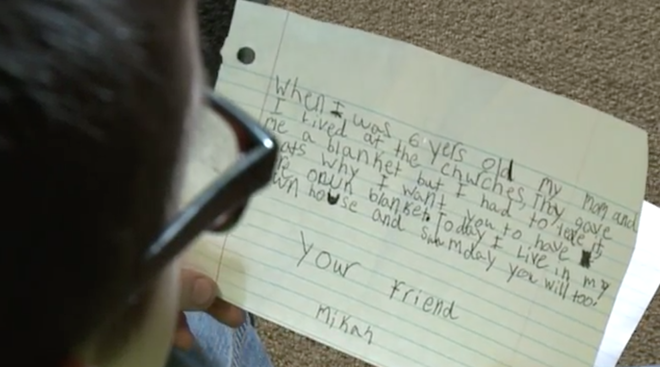 When I was 6 yers old my mom and
I lived at the churches, Thay gave
me a blanket but I had to leve it
ats why I want you to have
re onwn blanket. Today I live in my
wn house and sumday you will too!
Your Friend
Mikah